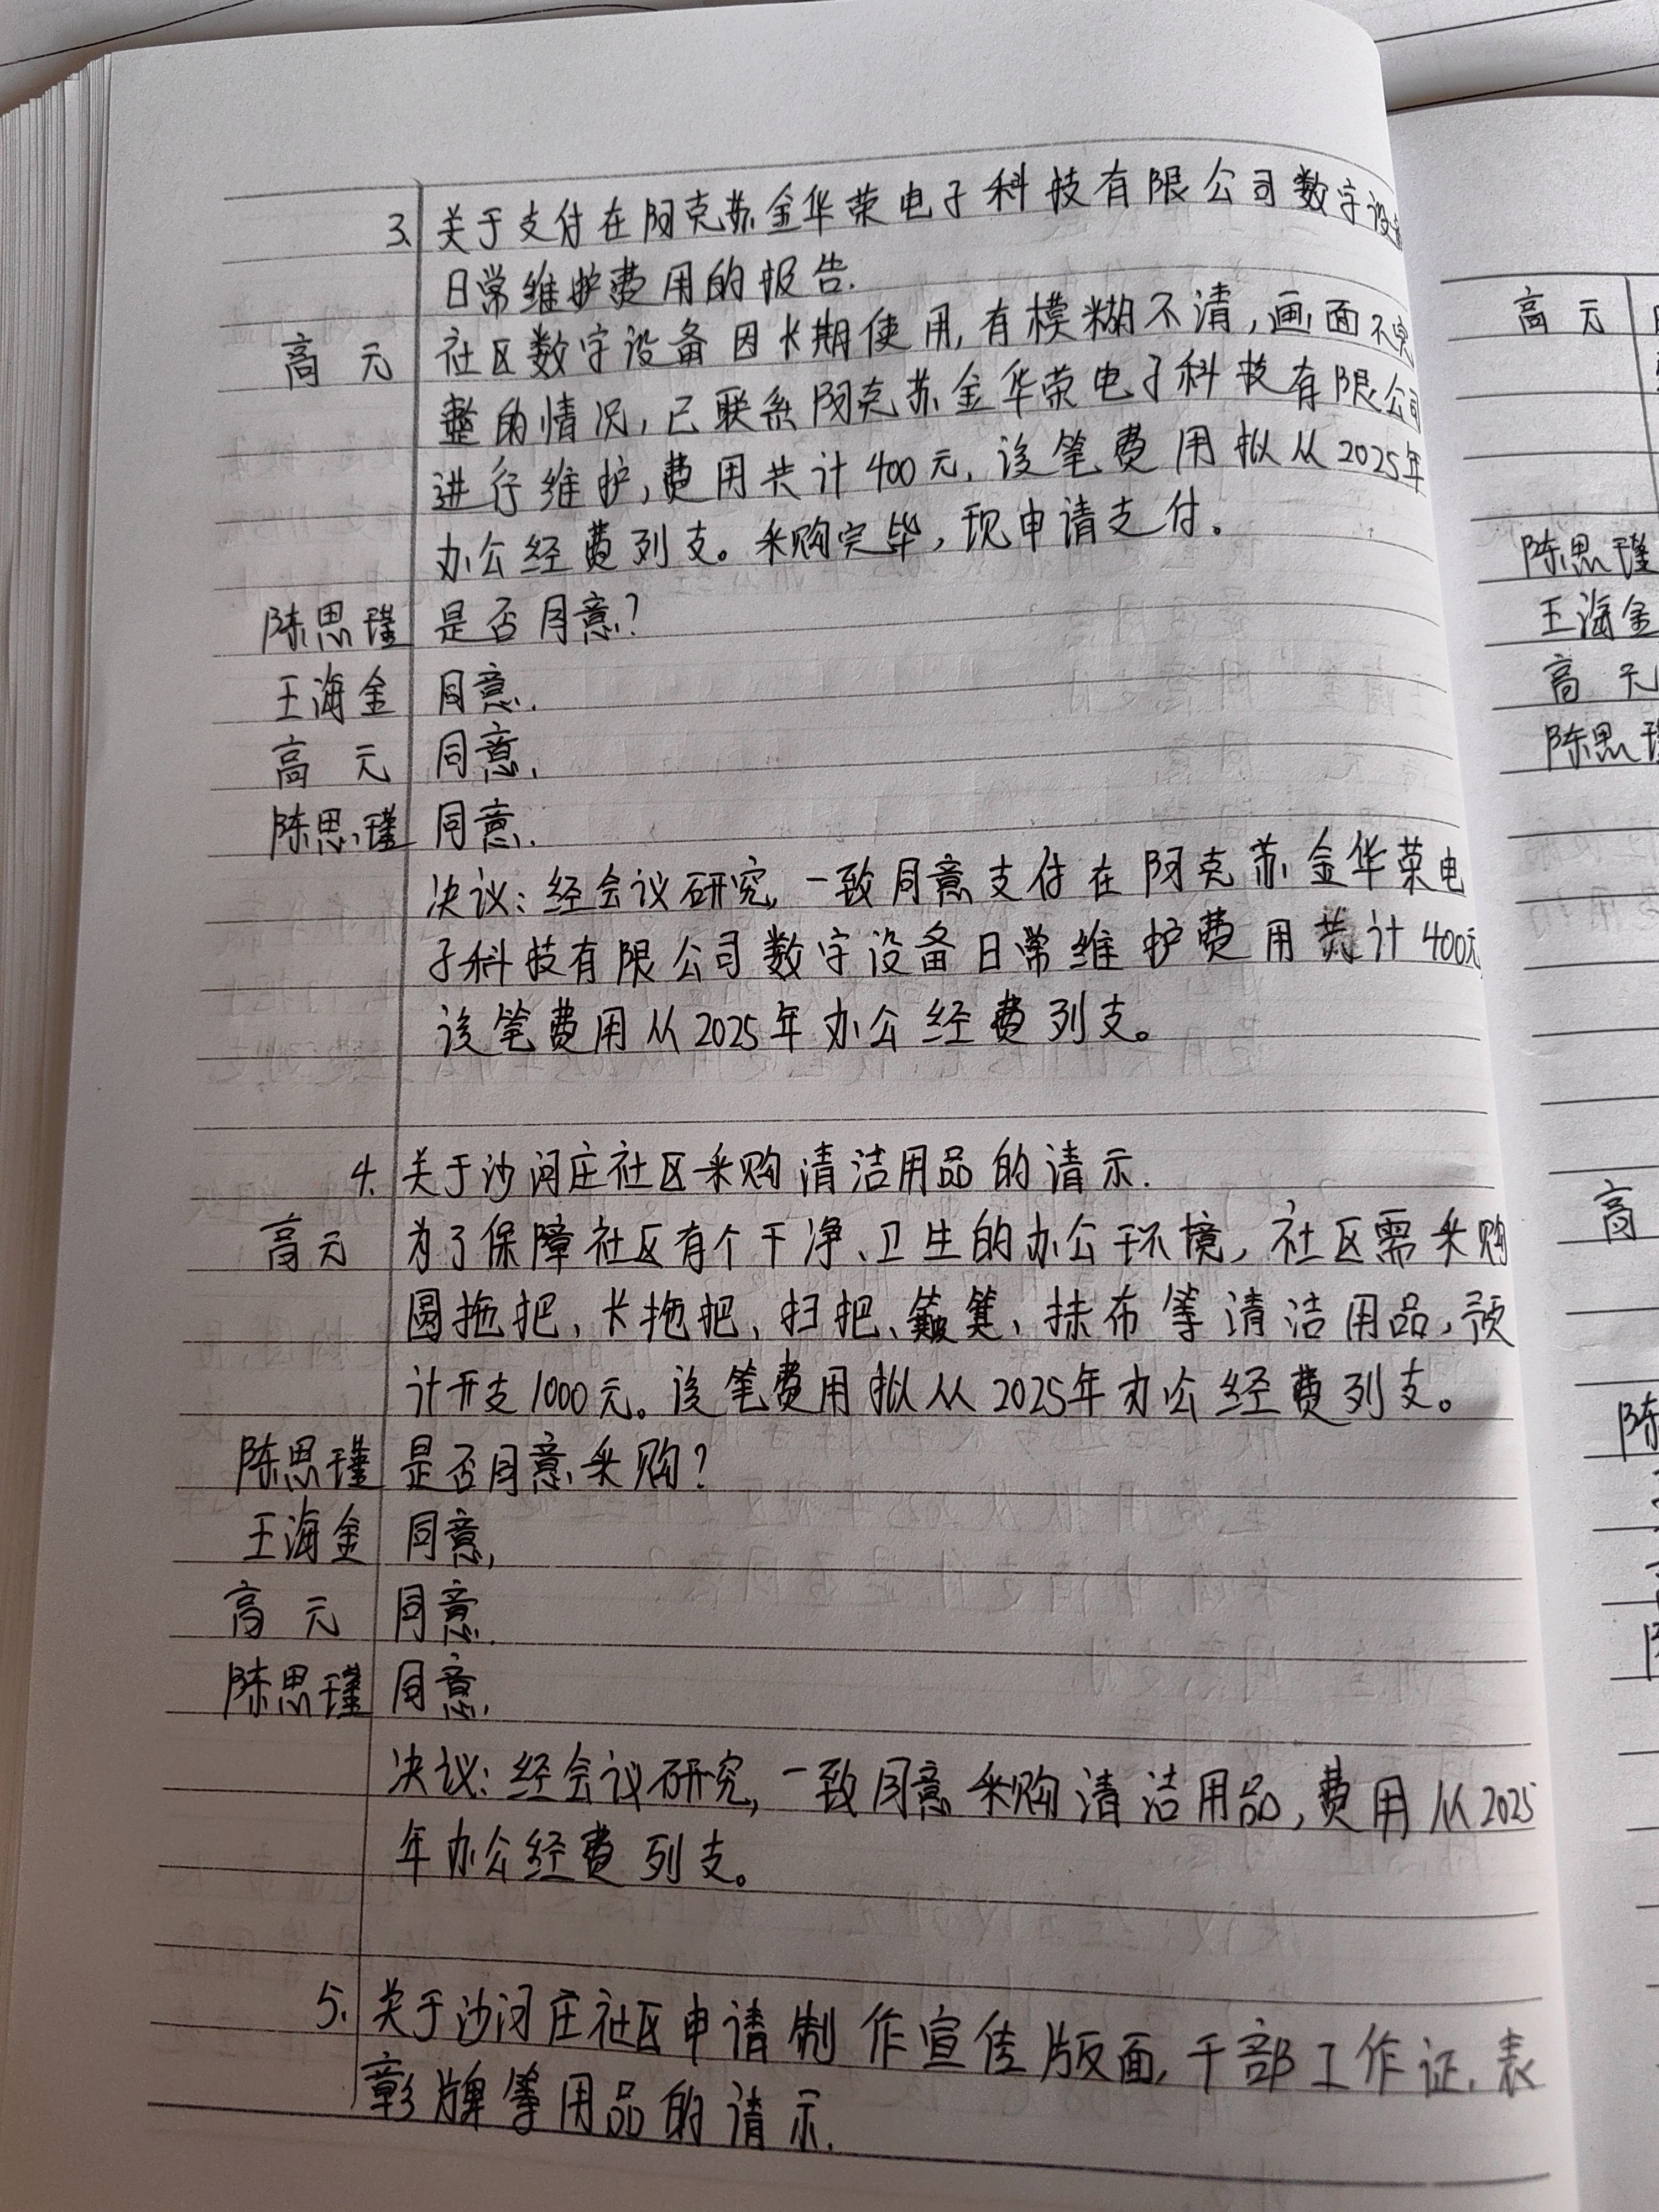 3. 关于支付在阿克苏金华荣电子科技有限公司数字设备
日常维护费用的报告.
高元 社区数字设备因长期使用,有模糊不清,画面不完
整的情况,已联系阿克苏金华荣电子科技有限公司
进行维护,费用共计400元,该笔费用拟从2025年
办公经费列支。采购完毕,现申请支付。
陈思瑾 是否同意?
王海金 同意.
高元 同意.
陈思瑾 同意.
决议:经会议研究,一致同意支付在阿克苏金华荣电
子科技有限公司数字设备日常维护费用共计400元
该笔费用从2025年办公经费列支。
4. 关于沙河庄社区采购清洁用品的请示.
高元 为了保障社区有个干净、卫生的办公环境,社区需采购
圆拖把、长拖把、扫把、簸箕、抹布等清洁用品,预
计开支1000元。该笔费用拟从2025年办公经费列支。
陈思瑾 是否同意采购?
王海金 同意,
高元 同意.
陈思瑾 同意.
决议:经会议研究,一致同意采购清洁用品,费用从2025
年办公经费列支。
5. 关于沙河庄社区申请制作宣传版面,干部工作证,表
彰牌等用品的请示.
高元
陈思瑾
王海金
高元
陈思瑾
高
陈